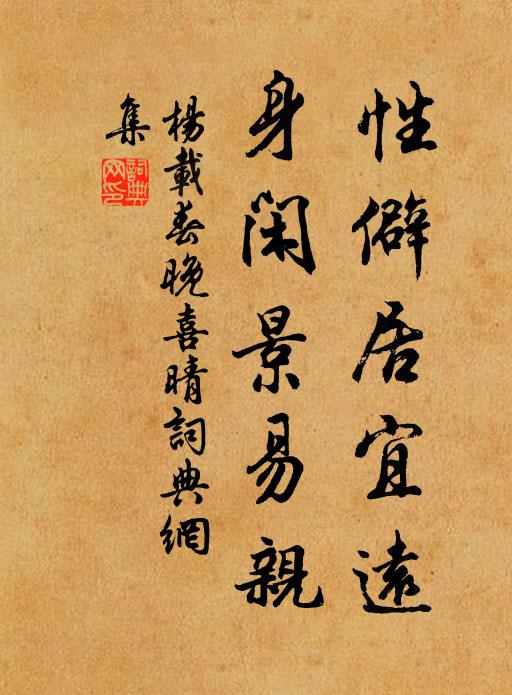 性僻居宜遠
身閑景易親
楊載春晚喜晴詞典網
集
詞典網印